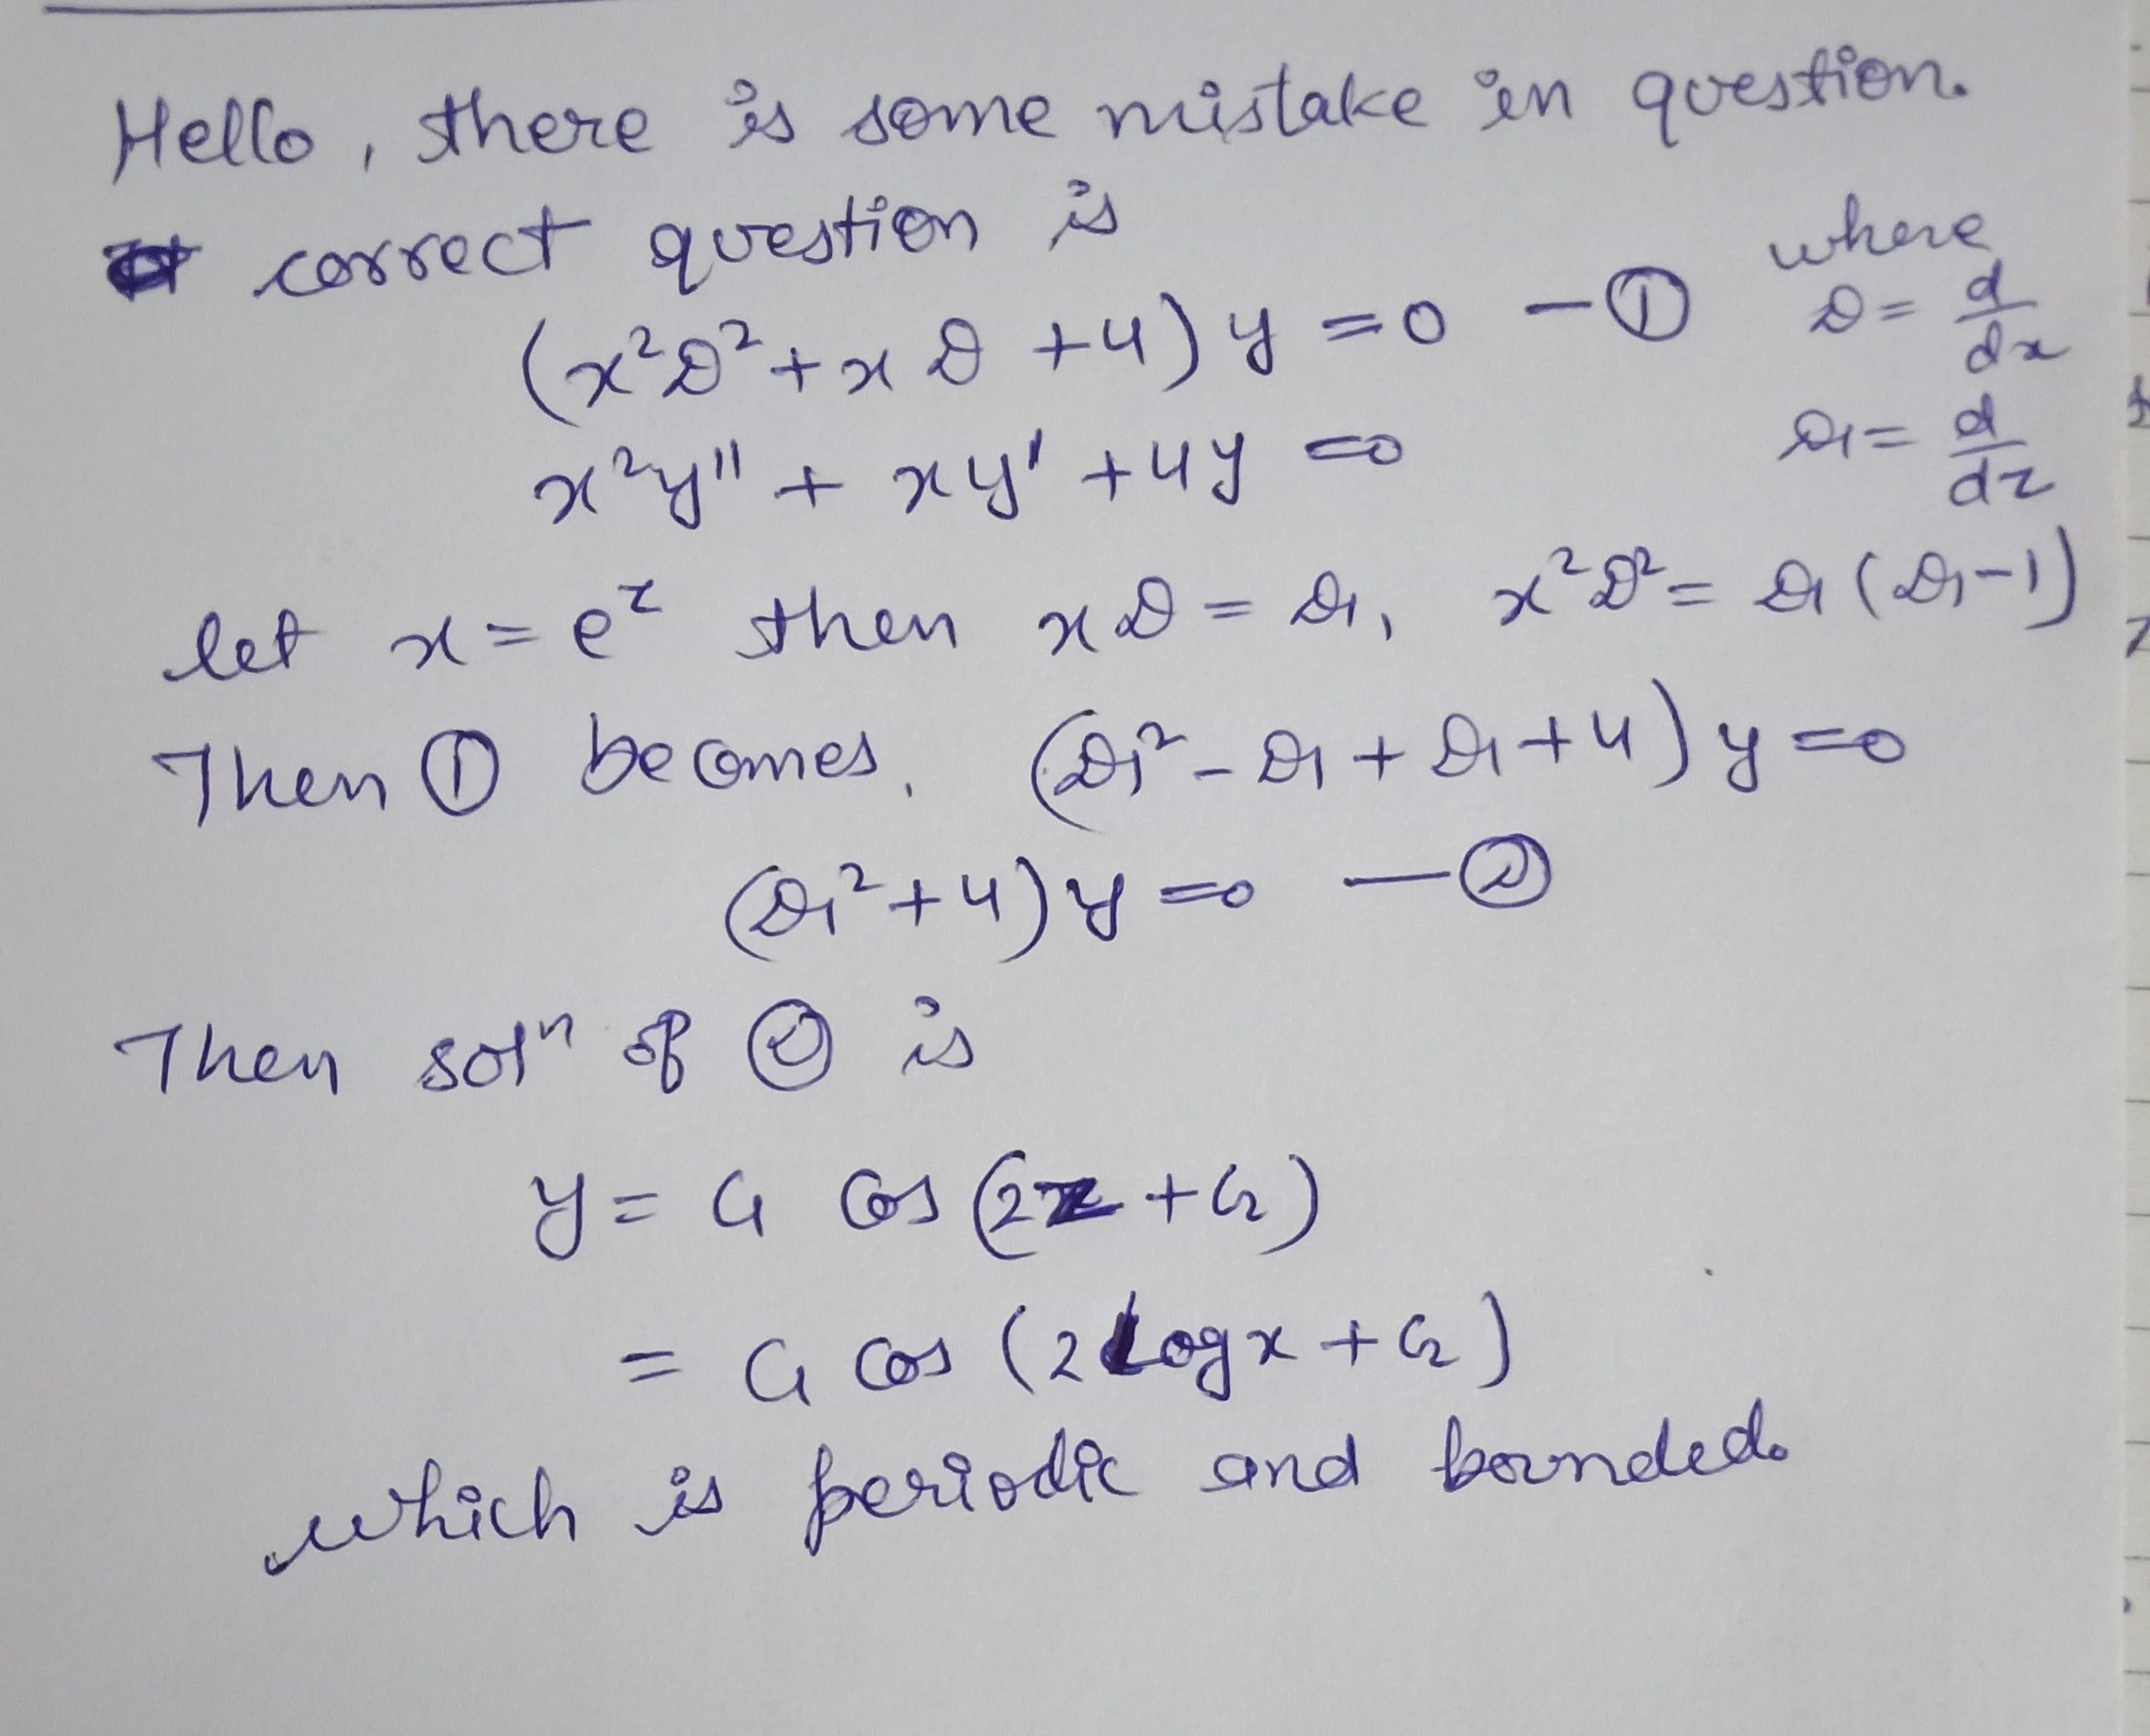 Hello, there is some mistake in question.
correct question is
(x²D² + xD + 4) y = 0 — ① where D = d/dx
x²y'' + xy' + 4y = 0 D₁ = d/dz
let x = e^z then xD = D₁, x²D² = D₁(D₁-1)
Then ① becomes, (D₁² - D₁ + D₁ + 4) y = 0
(D₁² + 4) y = 0 — ②
Then solⁿ of ② is
y = C₁ cos (2z + C₂)
= C₁ cos (2 log x + C₂)
which is periodic and bounded.